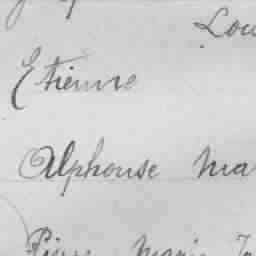 Lou
Etienne
Alphonse Ma
Pierre Marie